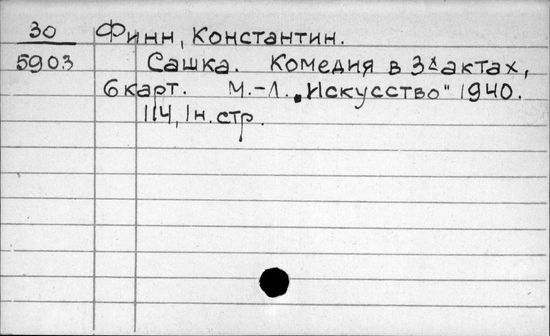 30 Финн, Константин.
5903 Сашка. Комедия в 3х актах,
6 карт. М.-Л. „Искусство" 1940.
114, 1н. стр.